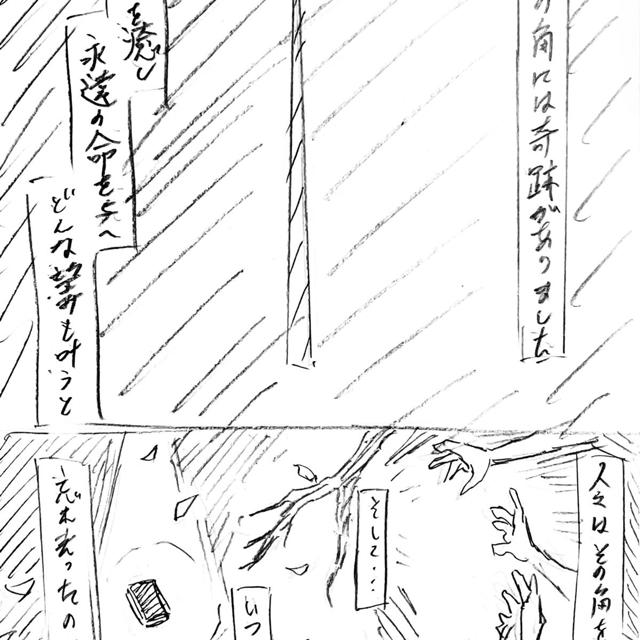 の角には奇跡がありました
を癒し
永遠の命を与へ
どんな望みも叶うと
人々はその角を
そして…
いつ
忘れ去ったの